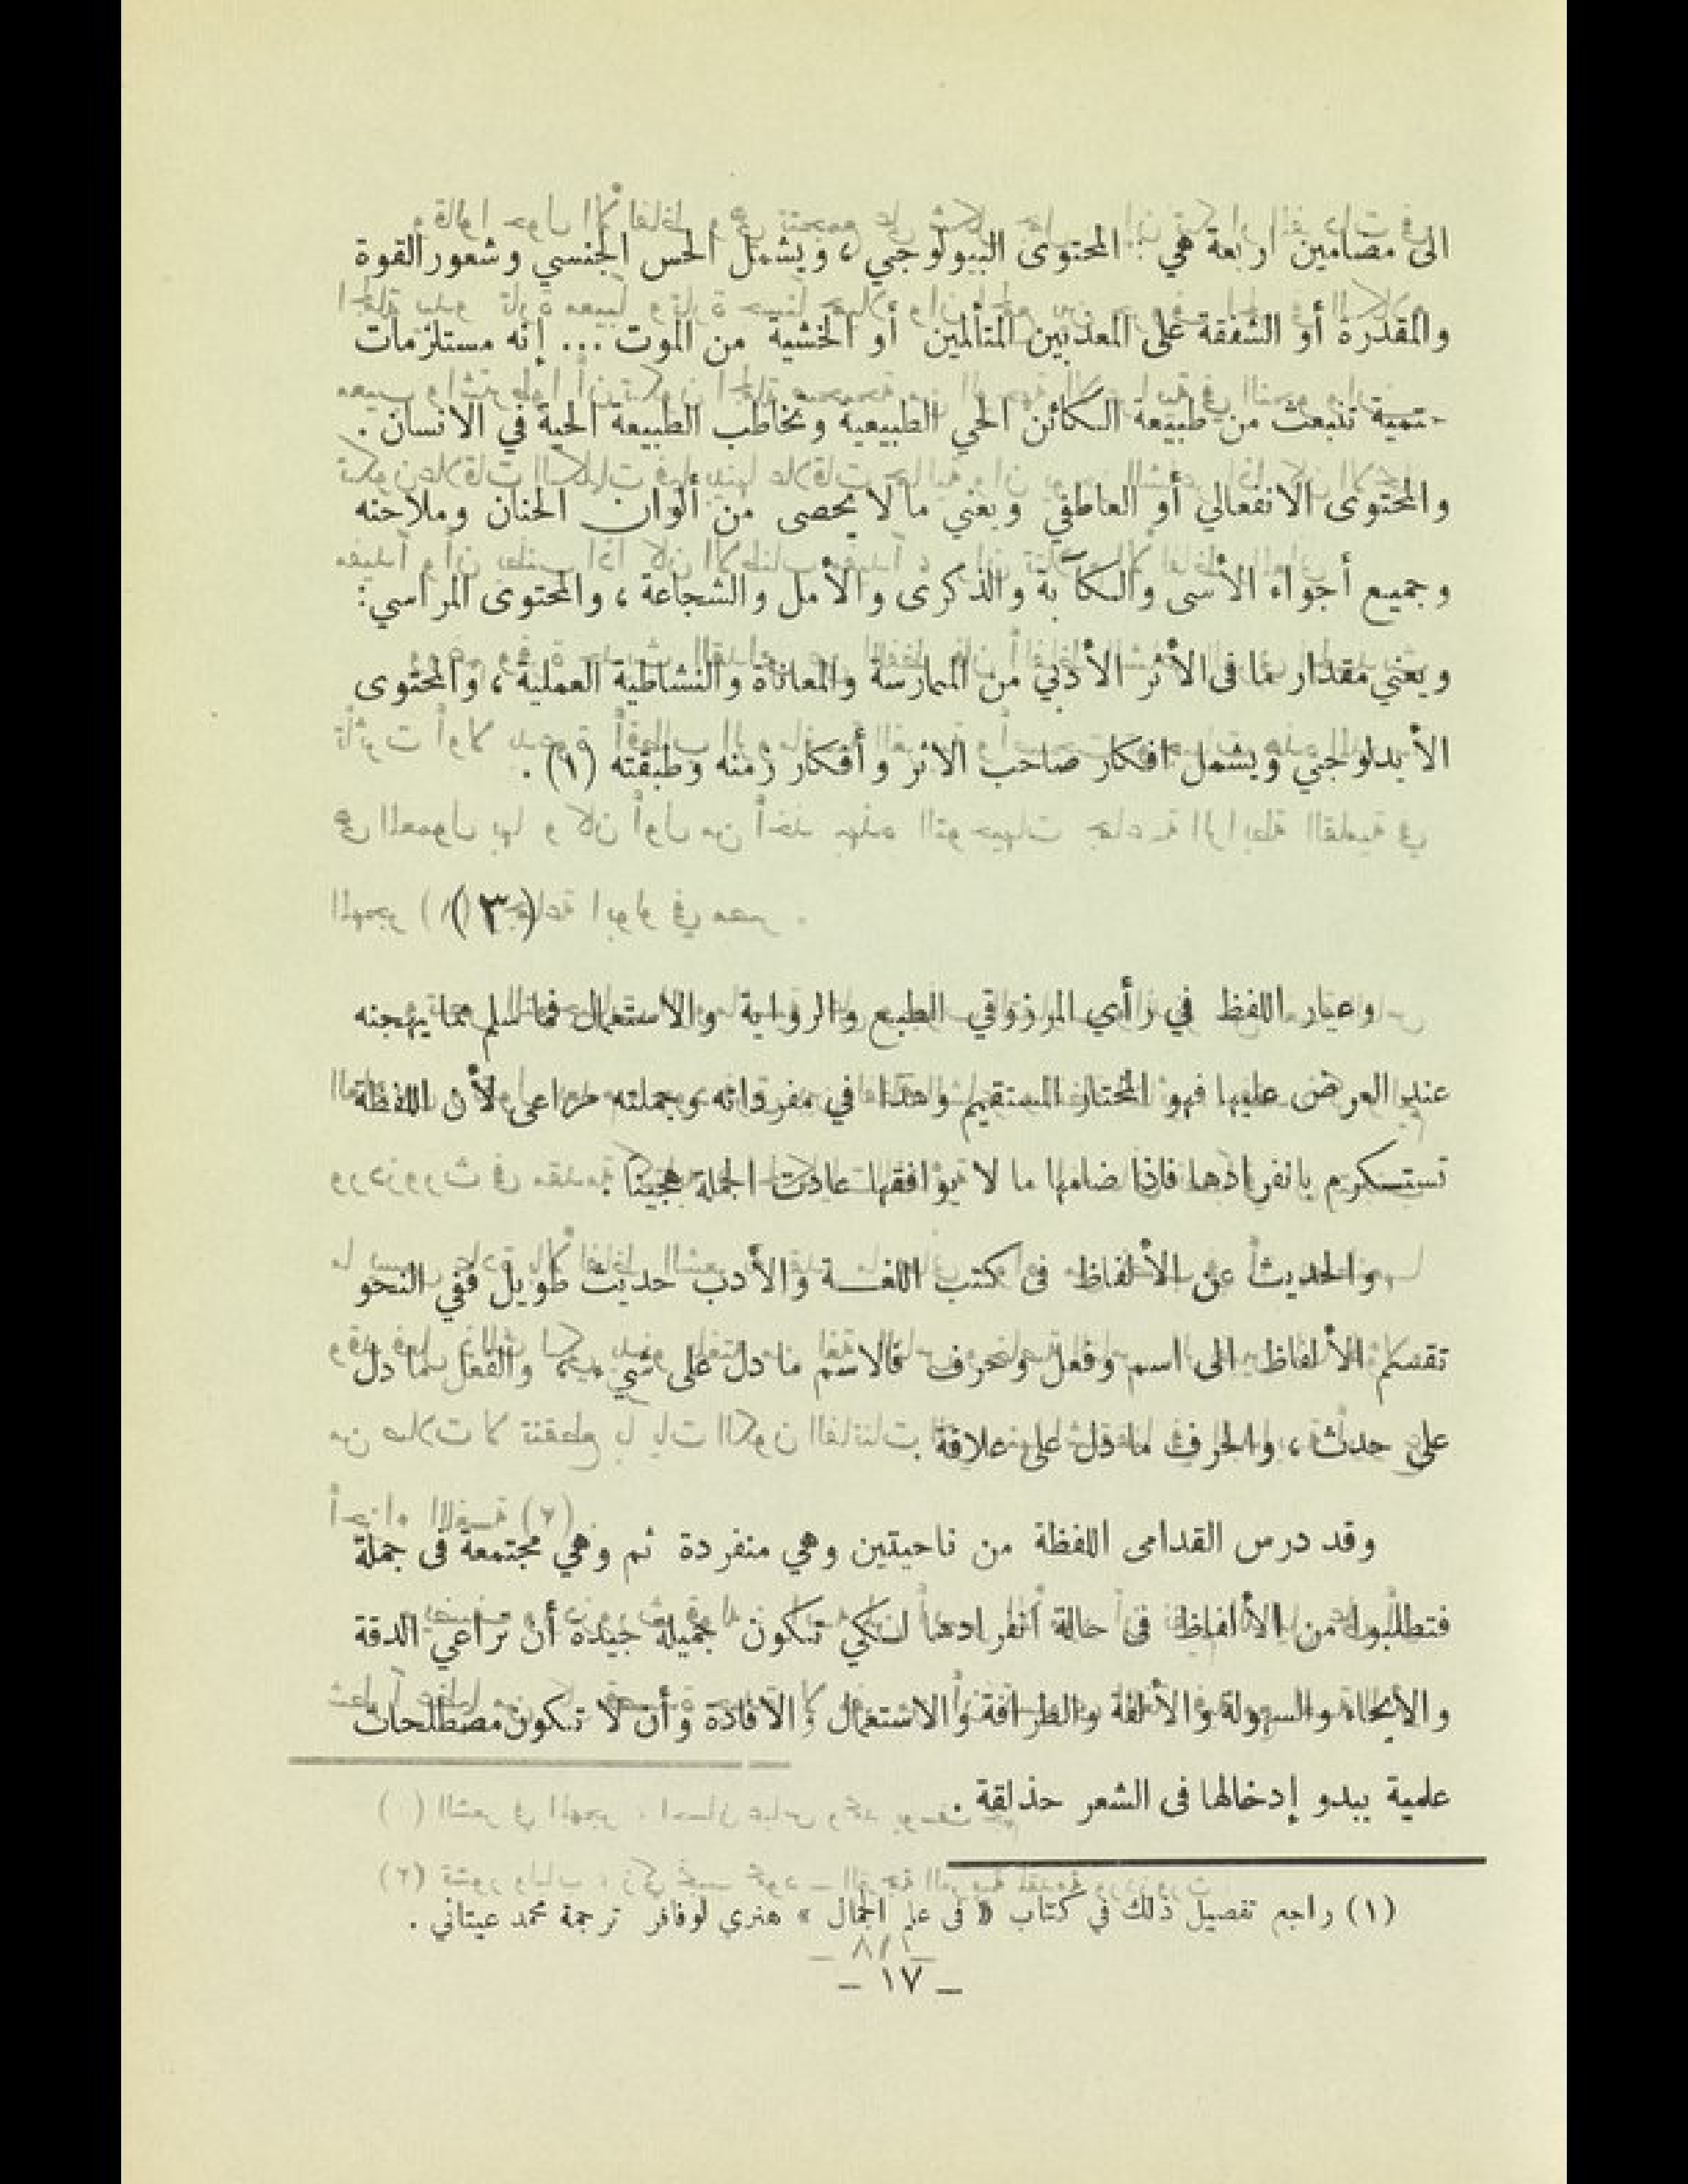 الى مضامين اربعة هي : المحتوى البيولوجي ، ويشمل الحس الجنسي وشعور القوة
والمقدرة أو الشفقة على المعذبين المتألمين أو الخشية من الموت ... إنه مستلزمات
حتمية تنبعث من طبيعة الكائن الحي الطبيعية وتخاطب الطبيعة الحية في الانسان .
والمحتوى الانفعالي أو العاطفي ويعني ما لا يحصى من ألوان الحنان وملاحنه
وجميع أجواء الأسى والكآبة والذكرى والأمل والشجاعة ، والمحتوى المراسي :
ويعني مقدار ما فى الأثر الأدبي من الممارسة والمعاناة والنشاطية العملية ، والمحتوى
الأيدلوجي ويشمل افكار صاحب الاثر وأفكار زمنه وطبقته (١) .
(٣)
وعيار اللفظ في رأي المرزوقي الطبع والرواية والاستعمال فما سلم مما يهجنه
عند العرض عليها فهو المختار المستقيم وهذا في مفرداته وجملته مراعى لأن اللفظة
تستكرم بانفرادها فاذا ضامها ما لا يوافقها عادت الجملة هجينا .
والحديث عن الألفاظ فى كتب اللغة والأدب حديث طويل ففي النحو
تقسم الألفاظ الى اسم وفعل وحرف فالاسم ما دل على شيء والفعل ما دل
على حدث ، والحرف ما دل على علاقة .
وقد درس القدامى اللفظة من ناحيتين وهي منفردة ثم وهي مجتمعة فى جملة
فتطلبوا من الألفاظ فى حالة انفرادها لكي تكون جميلة جيدة أن تراعي الدقة
والأيحاء والسهولة والألفة والطرافة والاستعمال والافادة وأن لا تكون مصطلحات
علمية يبدو إدخالها فى الشعر حذلقة .
(١) راجع تفصيل ذلك في كتاب « فى علم الجمال » هنري لوفافر ترجمة محمد عيتاني .
– ١٧ –